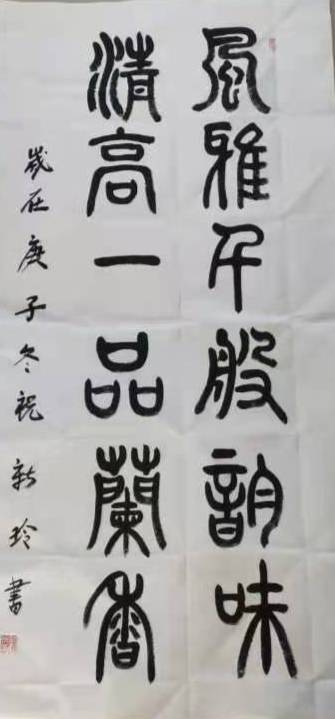 風雅千般韵味
清高一品蘭香
歲在庚子冬祝新玲書